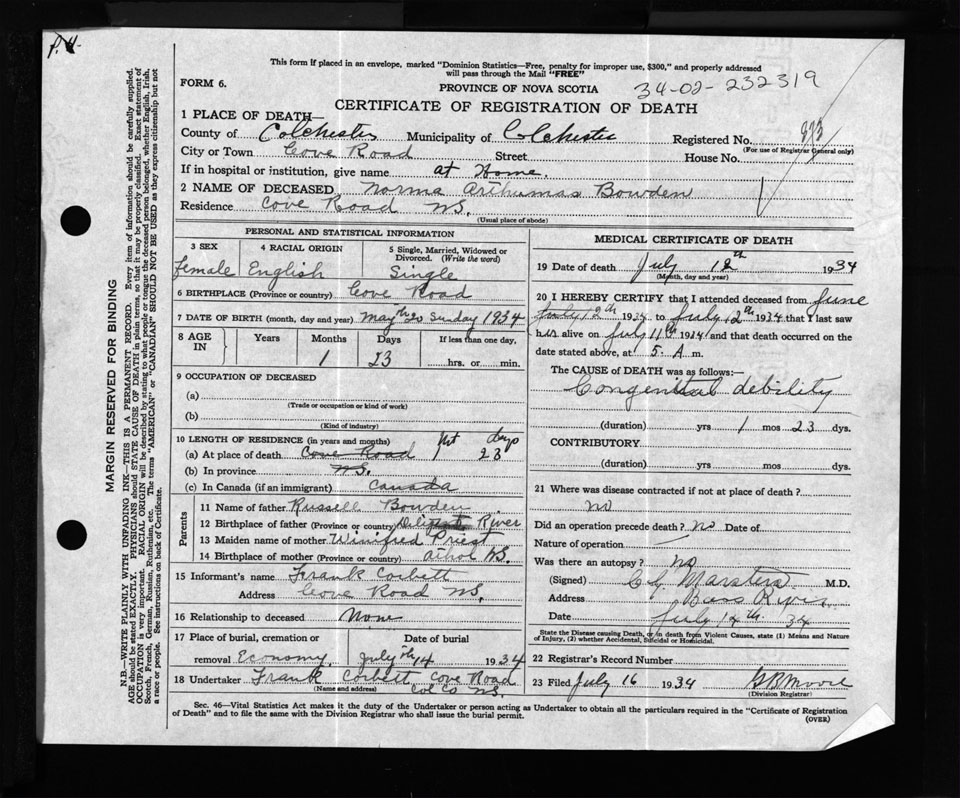 P.H.
This form if placed in an envelope, marked "Dominion Statistics—Free, penalty for improper use, $300," and properly addressed
will pass through the Mail "FREE"
FORM 6.
PROVINCE OF NOVA SCOTIA
34-02-232319
CERTIFICATE OF REGISTRATION OF DEATH
1 PLACE OF DEATH—
County of Colchester Municipality of Colchester Registered No. 873
(For use of Registrar General only)
City or Town Cove Road Street House No.
If in hospital or institution, give name at Home.
2 NAME OF DECEASED Norma Arthumas Bowden
Residence Cove Road NS.
(Usual place of abode)
PERSONAL AND STATISTICAL INFORMATION
3 SEX 4 RACIAL ORIGIN 5 Single, Married, Widowed or Divorced. (Write the word)
female English Single
6 BIRTHPLACE (Province or country) Cove Road
7 DATE OF BIRTH (month, day and year) May th 20 Sunday 1934
8 AGE IN Years Months Days If less than one day,
1 23 hrs. or min.
9 OCCUPATION OF DECEASED
(a)
(Trade or occupation or kind of work)
(b)
(Kind of industry)
10 LENGTH OF RESIDENCE (in years and months) days
(a) At place of death Cove Road 1 23
(b) In province NS.
(c) In Canada (if an immigrant) Canada
Parents
11 Name of father Russell Bowden
12 Birthplace of father (Province or country) River
13 Maiden name of mother Winifred Priest
14 Birthplace of mother (Province or country) Athol NS.
15 Informant's name Frank Corbett
Address Cove Road NS.
16 Relationship to deceased None
17 Place of burial, cremation or removal Economy. Date of burial July th 14 1934
18 Undertaker Frank Corbett Cove Road
(Name and address) Col Co NS.
MEDICAL CERTIFICATE OF DEATH
19 Date of death July 12th 1934
(Month, day and year)
20 I HEREBY CERTIFY that I attended deceased from June
July 12th 1934 to July 12th 1934 that I last saw
her alive on July 11th 1934 and that death occurred on the
date stated above, at 5. A m.
The CAUSE of DEATH was as follows:—
Congenital debility
(duration) yrs 1 mos 23 dys.
CONTRIBUTORY
(duration) yrs mos dys.
21 Where was disease contracted if not at place of death?
no
Did an operation precede death? no Date of
Nature of operation —
Was there an autopsy? no
(Signed) Marsters M.D.
Address Bass River
Date July 14th 34
State the Disease causing Death, or in death from Violent Causes, state (1) Means and Nature
of Injury, (2) whether Accidental, Suicidal or Homicidal.
22 Registrar's Record Number
23 Filed July 16 1934 G B Moore
(Division Registrar)
Sec. 46—Vital Statistics Act makes it the duty of the Undertaker or person acting as Undertaker to obtain all the particulars required in the "Certificate of Registration
of Death" and to file the same with the Division Registrar who shall issue the burial permit.
(OVER)
MARGIN RESERVED FOR BINDING
N.B.—WRITE PLAINLY WITH UNFADING INK—THIS IS A PERMANENT RECORD. Every item of information should be carefully supplied.
AGE should be stated EXACTLY. PHYSICIANS should STATE CAUSE OF DEATH in plain terms, so that it may be properly classified. Exact statement of
OCCUPATION is very important. RACIAL ORIGIN will be described by stating to what people or tongue the deceased person belonged, whether English, Irish,
Scotch, French, German, Russian, Ruthenian, etc. The terms "AMERICAN" or "CANADIAN" SHOULD NOT BE USED as they express citizenship but not
a race or people. See instructions on back of Certificate.